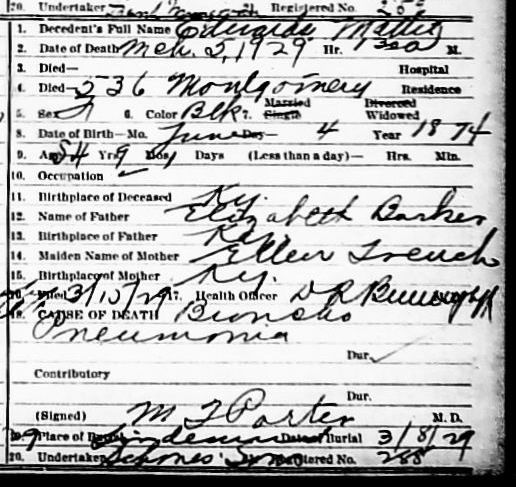 20. Undertaker Registered No.
1. Decedent's Full Name Edwards Mattie
2. Date of Death Mch. 5, 1929 Hr. 130a M.
3. Died— Hospital
4. Died— 536 Montgomery Residence
5. Sex F 6. Color Blk 7. Married Single Divorced Widowed
8. Date of Birth—Mo. June Day— 4 Year 1874
9. Age 54 Yrs 9 Mos 1 Days (Less than a day)— Hrs. Min.
10. Occupation ✓
11. Birthplace of Deceased Ky.
12. Name of Father Elizabeth Barker
13. Birthplace of Father Ky.
14. Maiden Name of Mother Ellen French
15. Birthplace of Mother Ky.
16. Filed 3/15/29 17. Health Officer D R
18. CAUSE OF DEATH Broncho
Pneumonia
Dur. ✓
Contributory
Dur.
(Signed) M F Porter M. D.
19. Place of Burial Date of Burial 3/8/29
20. Undertaker Sons Registered No. 288